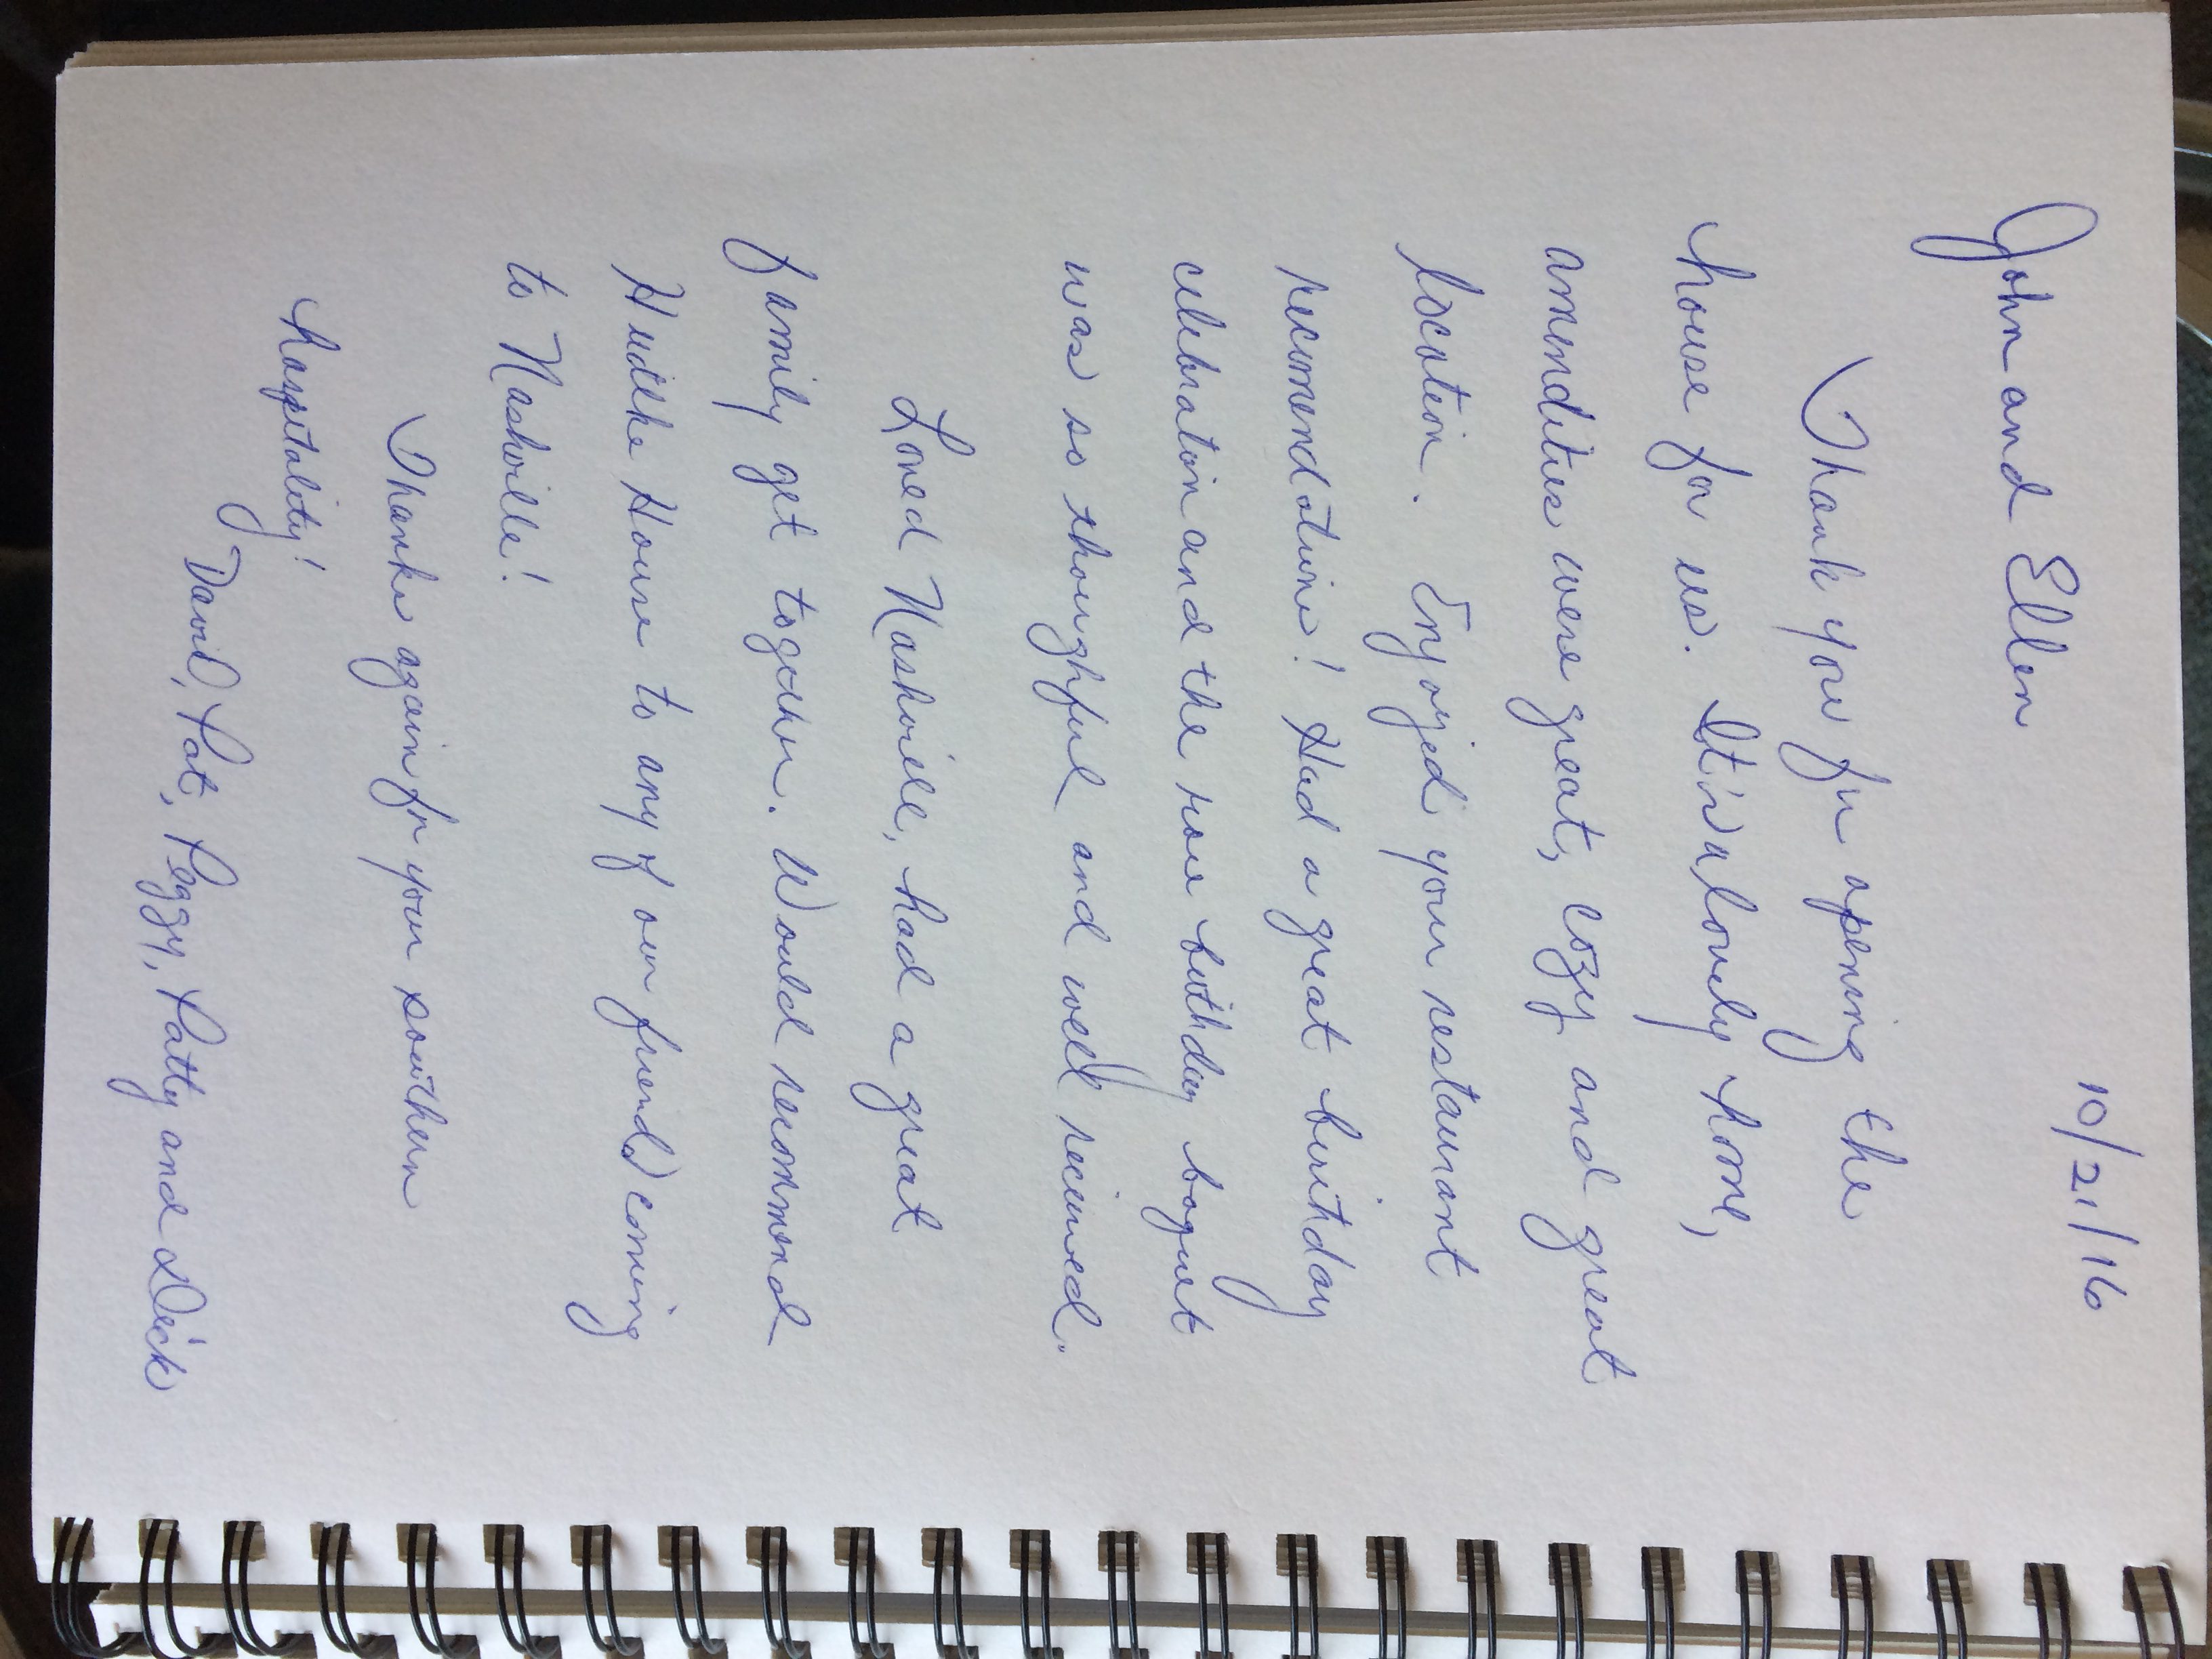 10/21/16
John and Ellen
Thank you for opening the
house for us. It's a lovely home,
amendities were great, cozy and great
location. Enjoyed your restaurant
recomendations! Had a great birthday
celebration and the rose birthday boquet
was so thoughtful and well received.
Loved Nashville, had a great
family get together. Would recommend
House to any of our friends coming
to Nashville!
Thanks again for your southern
hospitality!
David, Pat, Peggy, Patty and Dick